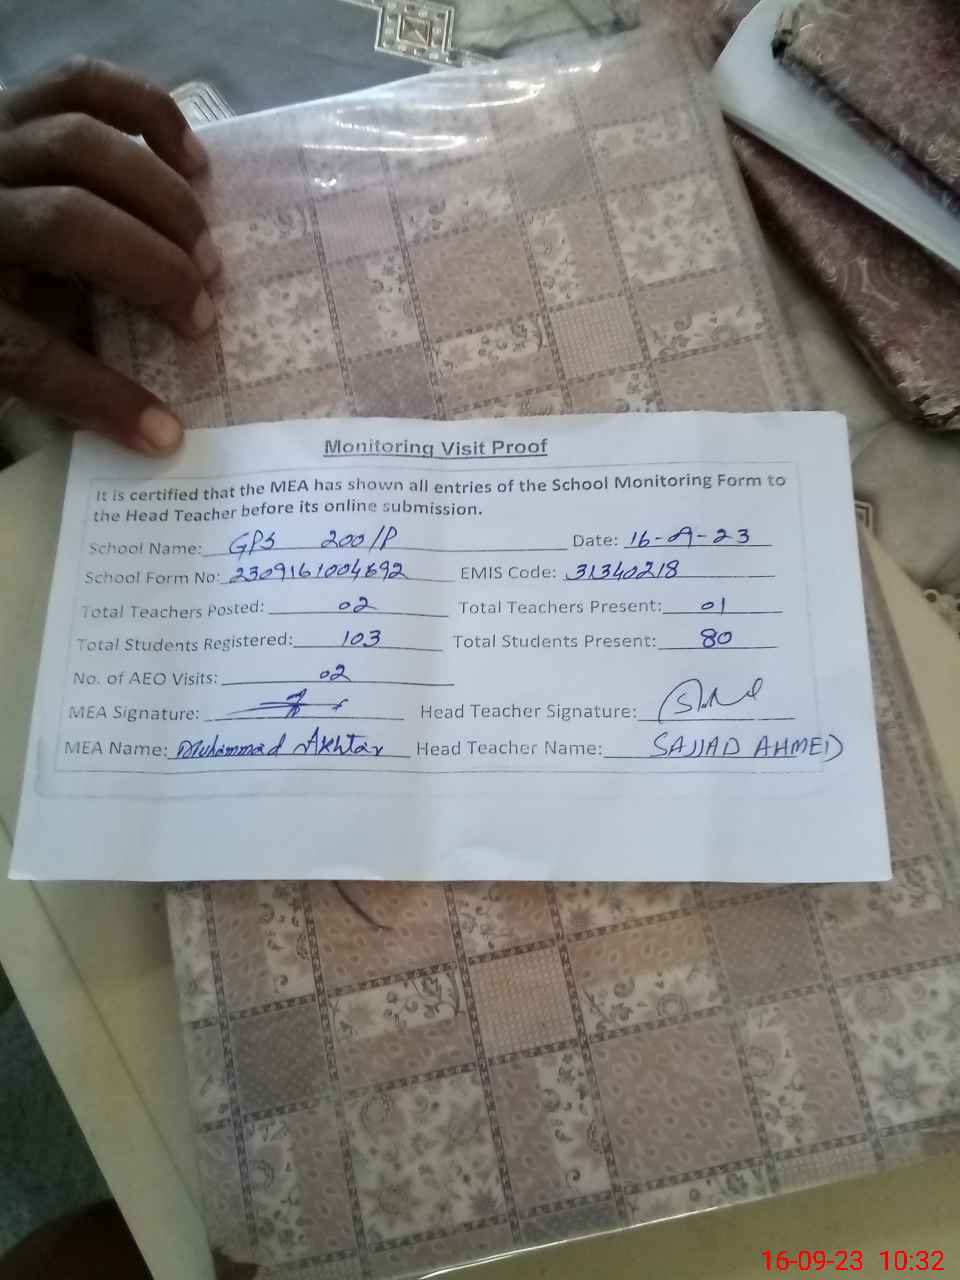 Monitoring Visit Proof
It is certified that the MEA has shown all entries of the School Monitoring Form to
the Head Teacher before its online submission.
School Name: GPS 200/P Date: 16-9-23
School Form No: 2309161004692 EMIS Code: 31340218
Total Teachers Posted: 02 Total Teachers Present: 01
Total Students Registered: 103 Total Students Present: 80
No. of AEO Visits: 02
MEA Signature: Head Teacher Signature:
MEA Name: Muhammad Akhtar Head Teacher Name: SAJJAD AHMED
16-09-23 10:32